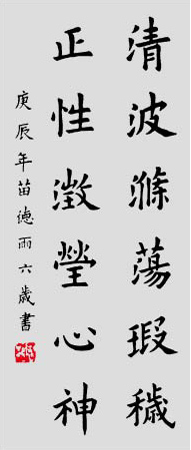 清波滌蕩瑕穢
正性澂瑩心神
庚辰年苗德雨六歲書